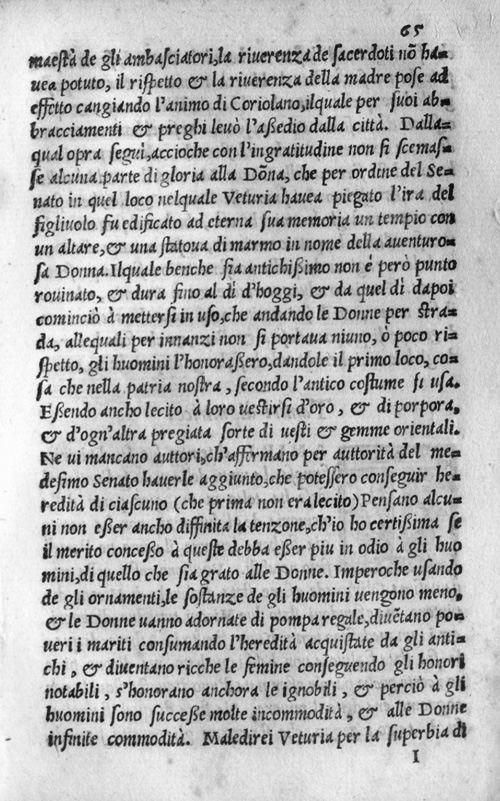 65
maestà de gli ambasciatori,la riuerenza de sacerdoti nō ha-
uea potuto, il rispetto & la riuerenza della madre pose ad
effetto cangiando l'animo di Coriolano,ilquale per suoi ab-
bracciamenti & preghi leuò l'aßedio dalla città. Dalla-
qual opra seguì,accioche con l'ingratitudine non si scemas-
se alcuna parte di gloria alla Dōna, che per ordine del Se-
nato in quel loco nelquale Veturia hauea piegato l'ira del
figliuolo fu edificato ad eterna sua memoria un tempio con
un altare,& una statoua di marmo in nome della auenturo-
sa Donna.Ilquale benche sia antichißimo non é però punto
rouinato, & dura fino al dì d'hoggi, & da quel dì dapoi
cominciò à mettersi in uso,che andando le Donne per stra-
da, allequali per innanzi non si portaua niuno, ò poco ri-
spetto, gli huomini l'honoraßero,dandole il primo loco, co-
sa che nella patria nostra, secondo l'antico costume si usa.
Eßendo ancho lecito à loro uestirsi d'oro, & di porpora,
& d'ogn'altra pregiata sorte di uesti & gemme orientali.
Ne ui mancano auttori,ch'affermano per auttorità del me-
desimo Senato hauerle aggiunto,che potessero conseguir he-
redità di ciascuno (che prima non era lecito)Pensano alcu-
ni non eßer ancho diffinita la tenzone,ch'io ho certißima se
il merito conceßo à queste debba eßer piu in odio à gli huo
mini,di quello che sia grato alle Donne. Imperoche usando
de gli ornamenti,le sostanze de gli huomini uengono meno,
& le Donne uanno adornate di pompa regale,diuētano po-
ueri i mariti consumando l'heredità acquistate da gli anti-
chi, & diuentano ricche le femine conseguendo gli honori
notabili, s'honorano anchora le ignobili, & perciò à gli
huomini sono succeße molte incommodità, & alle Donne
infinite commodità. Maledirei Veturia per la superbia di
I